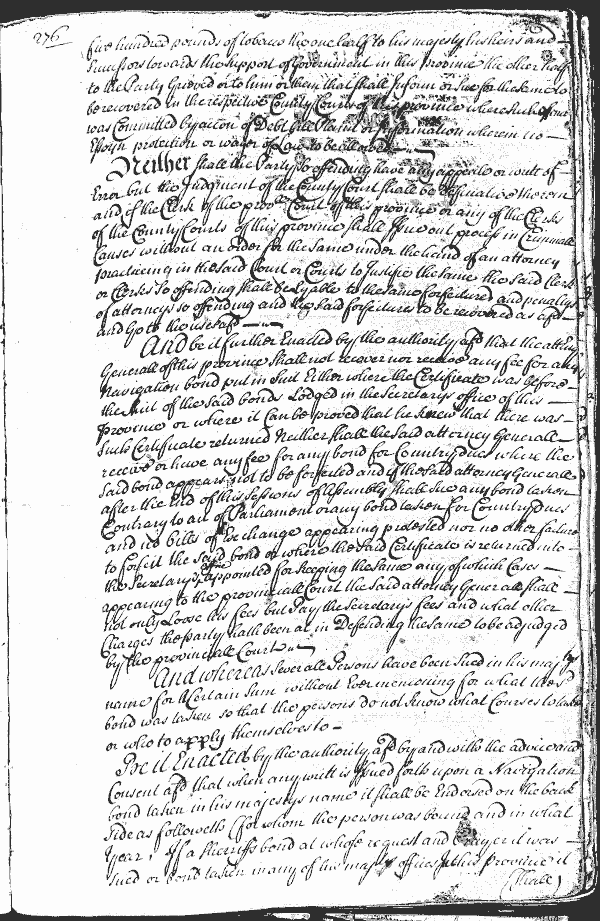 276
five hundred pounds of tobacco the one half to his majesty his heirs and
Successors towards the support of Government in this province the other half
to the Party Grieved or to him or them that shall Inform or Sue for the same to
be recovered in the respective County Courts of this province where such offence
was Committed by action of Debt Bill Plaint or Information wherein no
Essoin protection or wager of Law to be allowed
Neither shall the Party so offending have any appeale or writt of
Error but the Judgment of the County Court shall be definitive therein
and if the Clerk of the prov.ll Court of this province or any of the Clerks
of the County Courts of this province shall Issue out process in Criminall
Causes without an order for the same under the hand of an attorney
practicing in the said Court or Courts to Justifie the same the said Clerk
or Clerks so offending shall be Lyable to the same forfeitures and penaltys
of attorneys so offending and the said forfeitures to be recovered as afd
and Go to the use afd
And be it further Enacted by the authority afd that the attorny
Generall of this province shall not recover nor receive any fee for any
Navigation bond put in Suit Either where the Certificate was before
the suit of the said bonds Lodged in the Secretarys office of this
Province or where it Can be proved that he knew that there was
Such Certificate returned Neither shall the said attorney Generall
receive or have any fee for any bond for Country dues where the
said bond appears not to be forfeited and if the said attorney Generall
after the End of this Sessions of Assembly shall sue any bond taken
Contrary to act of Parliament or any bond taken for Country dues
and no bills of Exchange appearing protested nor no other failure
to forfeit the said bond or where the said Certificate is returned into
the Secretary's office appointed for keeping the same any of which Cases
appearing to the provinciall Court the said attorney Generall shall
not only Loose his fees but Pay the Secretarys fees and what other
Charges the party hath been at in Defending the same to be adjudged
by the provinciall Court
And whereas Severall Persons have been Sued in his majtys
name for a Certain Sum without Ever mentioning for what the sd
bond was taken so that the persons do not know what Courses to take
or who to apply themselves to
Be it Enacted by the authority afd by and with the advice and
Consent afd that when any writt is Issued forth upon a Navigation
bond taken in his majestys name it shall be Endorsed on the back
side as followeth (for whom the person was bound and in what
year, If a Sherriffs bond at whose request and Prayer it was
Sued or bond taken in any of his majtys offices of this Province it
(shall)